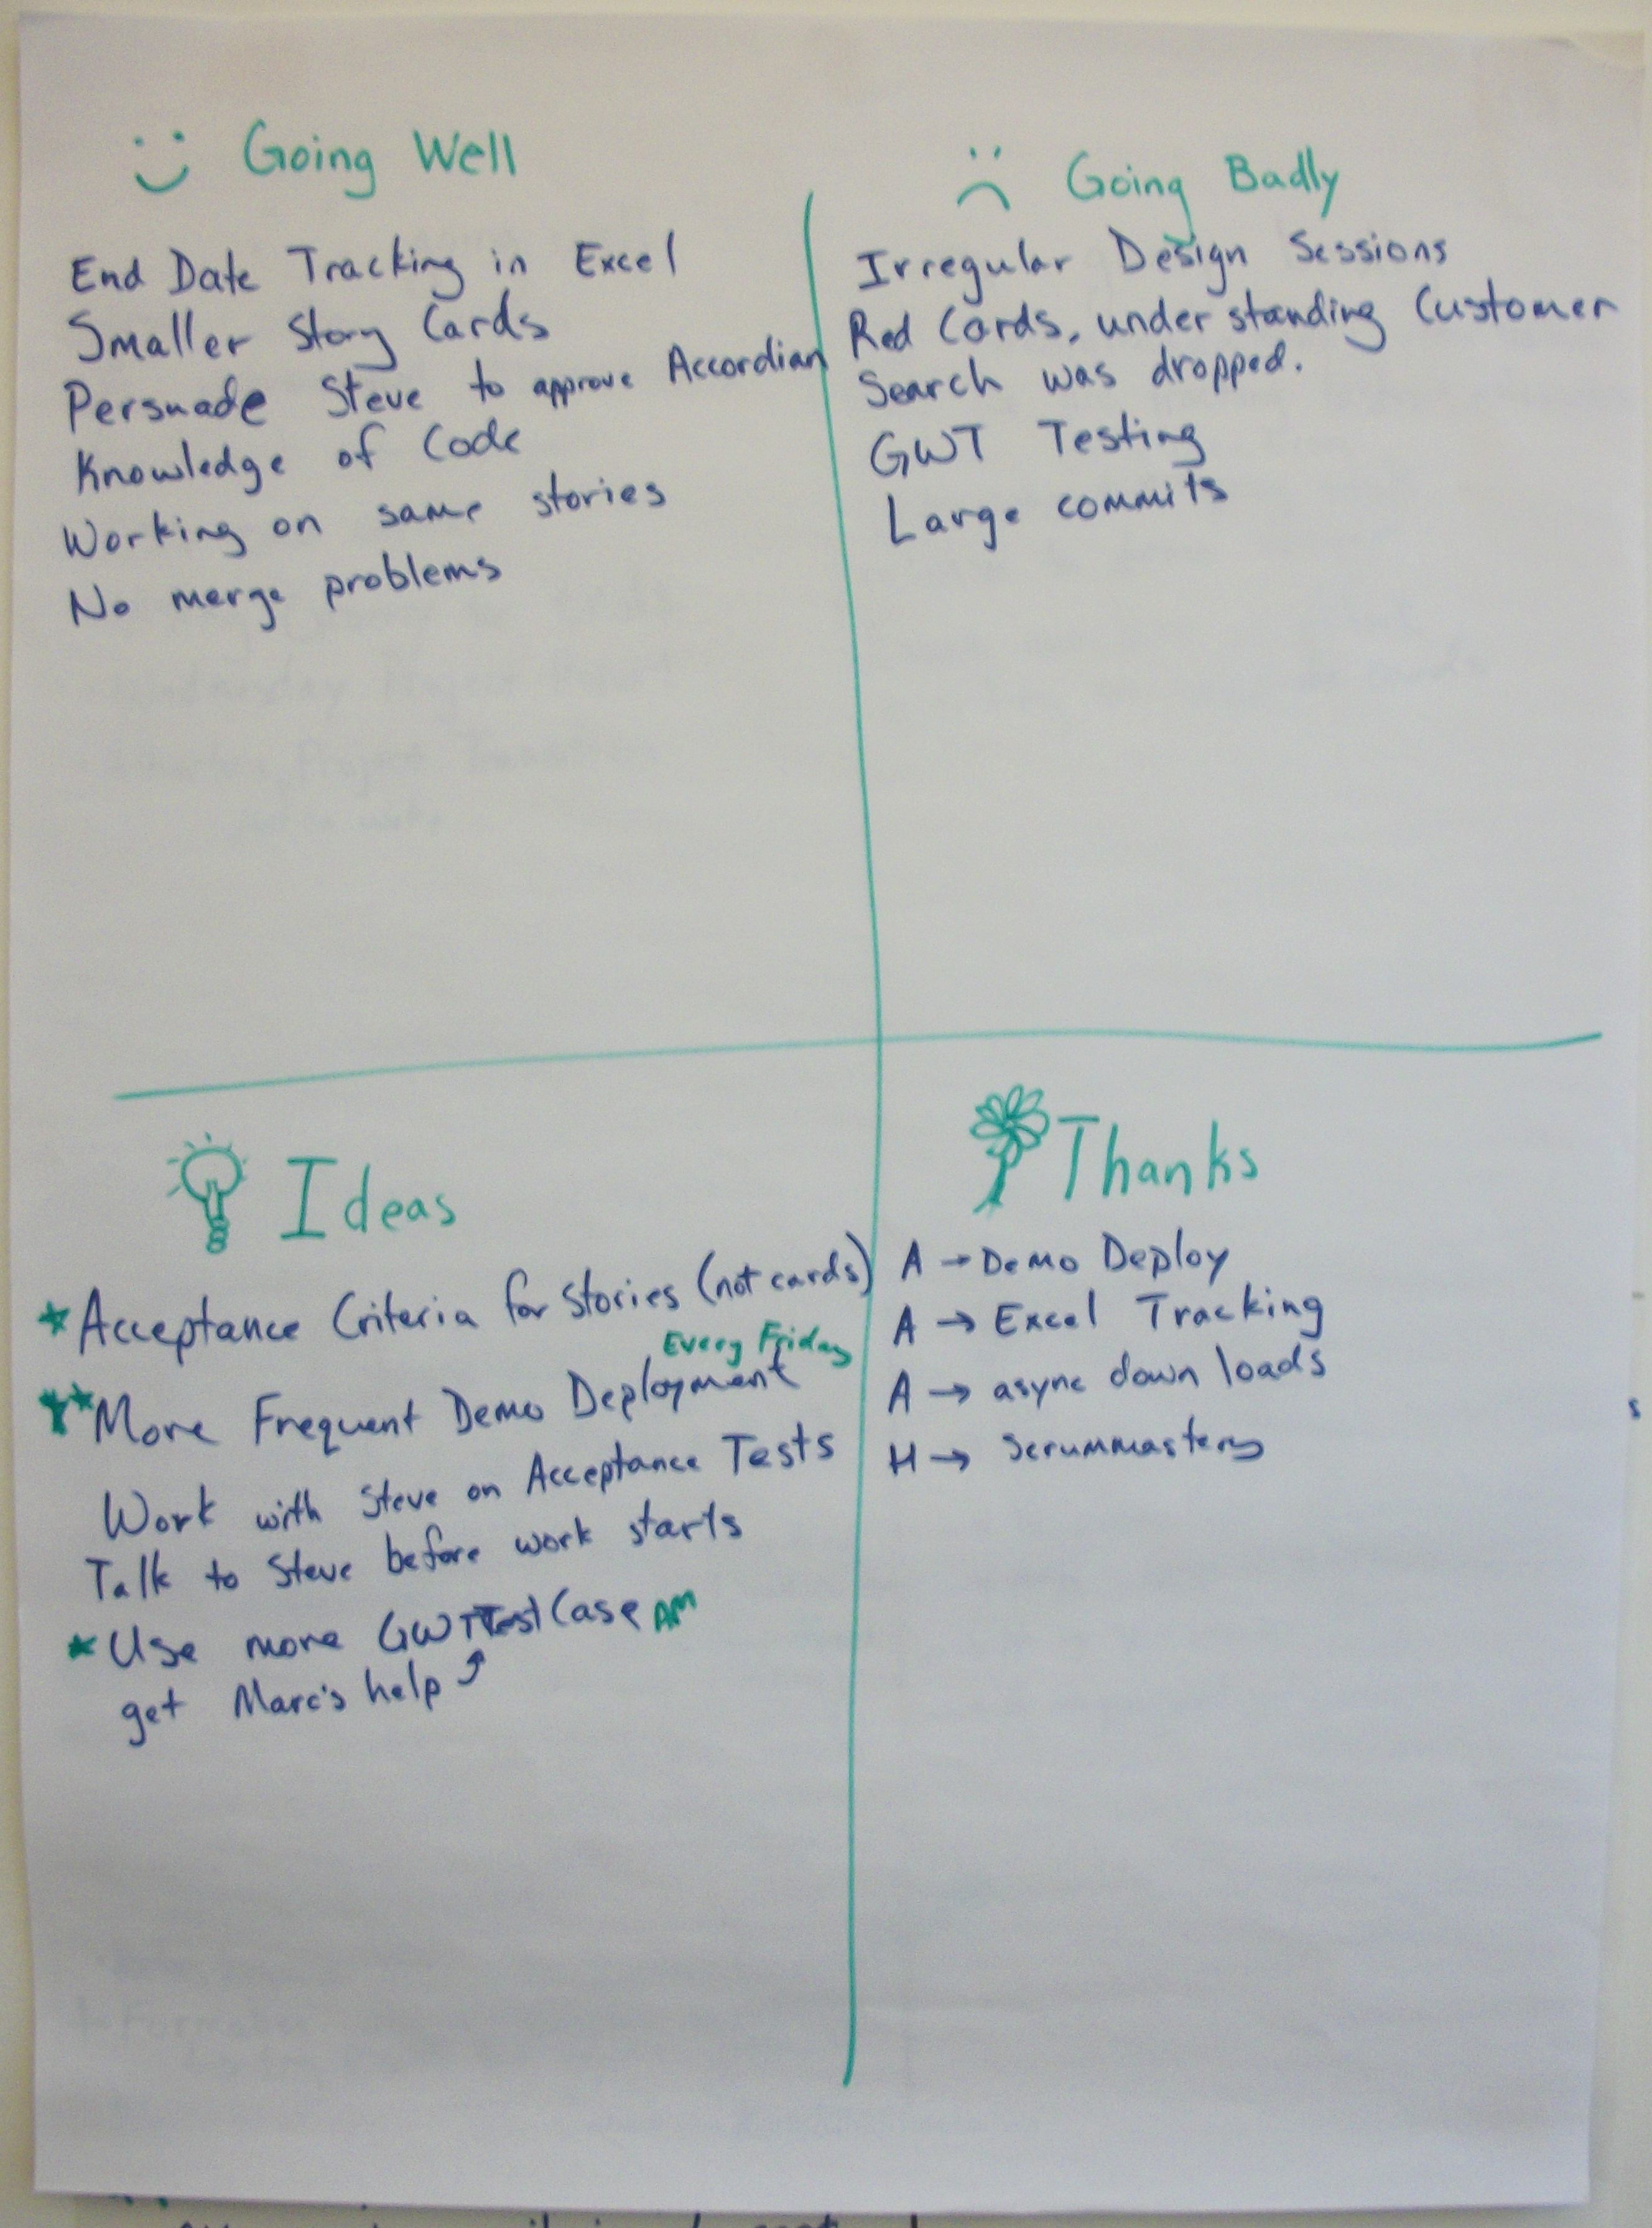 Going Well
End Date Tracking in Excel
Smaller Story Cards
Persuade Steve to approve Accordian
Knowledge of Code
Working on same stories
No merge problems
Going Badly
Irregular Design Sessions
Red Cards, understanding Customer
Search was dropped.
GWT Testing
Large commits
Ideas
Acceptance Criteria for Stories (not cards)
Every Friday
More Frequent Demo Deployment
Work with Steve on Acceptance Tests
Talk to Steve before work starts
Use more GWTTestCase AM
get Marc's help
Thanks
A → Demo Deploy
A → Excel Tracking
A → async down loads
H → Scrummastery